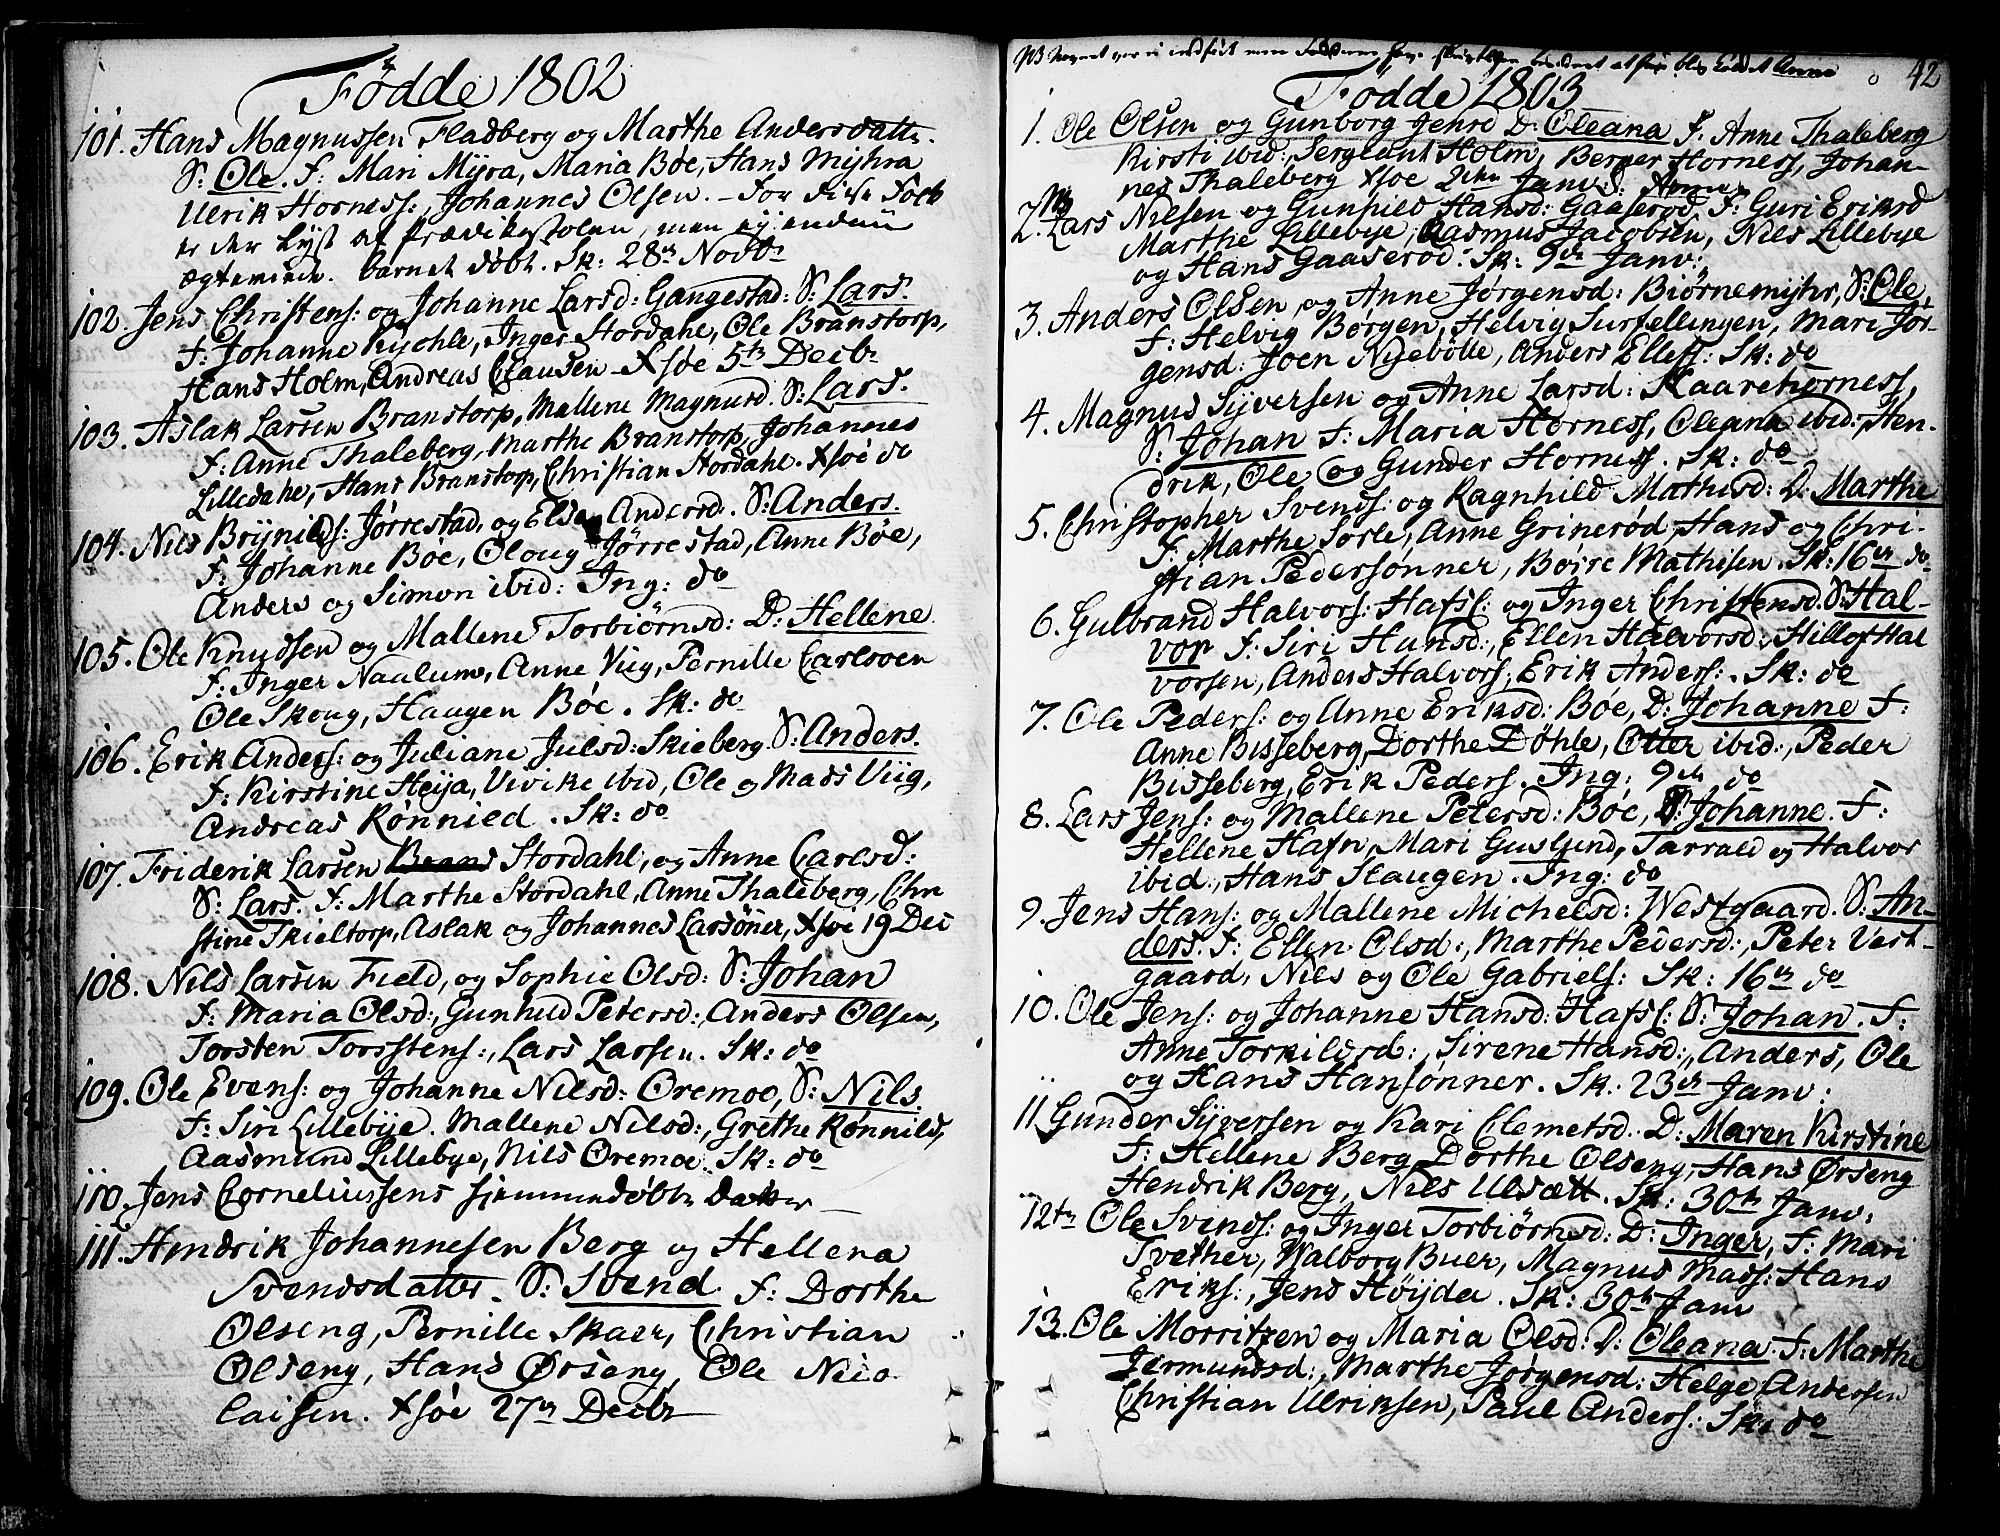 Fødde 1802
101. Hans Magnussen Fladberg og Marthe Andersdattr.
S: Ole. F: Mari Myra, Maria Bøe, Hans Mijhra
Ulrik Horness:, Johannes Olsen. – For disse Folk
er der Lyst af Prædikestolen, men ej endnu
ægteviede. barnet døbt. Sk: 28de Novbr
102. Jens Christens: og Johanne Larsd: Gangestad: S: Lars.
F: Johanne Kychle, Inger Stordahl, Ole Branstorp,
Hans Holm, Andreas Clausen – Xsøe 5te Decbr
103. Aslak Larsen Branstorp, Mallene Magnusd. S: Lars.
F: Anne Thaleberg, Marthe Branstorp, Johannes
Lilledahl, Hans Branstorp, Christian Stordahl. Xsøe do
104. Nils Brynilds: Jørrestad, og Else Andersd. S: Anders.
F: Johanne Bøe, Oloug Jørrestad, Anne Bøe,
Anders og Simon ibid: Ing: do
105. Ole Knudsen og Mallene Torbiørnsd: D: Hellene.
F: Inger Naalum, Anne Viig, Pernille Carlsven
Ole Skoug, Haugen Bøe. Sk: do
106. Erik Anders: og Juliane Julsd: Skieberg. S: Anders.
F: Kirstine Heya, Vivike ibid, Ole og Mads Viig,
Andreas Rønnied. Sk: do
107. Friderik Larsen Stordahl, og Anne Carlsd:
S: Lars. F: Marthe Stordahl, Anne Thaleberg, Chri
stine Skieltorp, Aslak og Johannes Larsøner, Xsøe 19 Dec
108. Nils Larsen Field, og Sophie Olsd: S: Johan
F: Maria Olsd:, Gunhild Petersd:, Anders Olsen,
Torsten Torsstens:, Lars Larsen. Sk: do
109. Ole Evens: og Johanne Nilsd: Oremoe, S: Nils.
F: Siri Lillebye. Mallene Nilsd:, Grethe Rønnild,
Aasmund Lillebye, Nils Oremoe. Sk: do
110. Jens Corneliussens hjemmedøbte Datter –
111. Hendrik Johannesen Berg og Hellena
Svendsdatter. S: Svend F: Dorthe
Olseng, Pernille Skaer, Christian
Olseng, Hans Ørseng, Ole Nico
laisen. Xsøe 27de Decbr
NB Navnet var ej indført men at hun blev kaldet Anne
42
Fødde 1803
1. Ole Olsen og Gunborg Jensd D: Oleana F: Anne Thaleberg
Kirsti ibid:, Sergiant Holm, Berger Horness, Johan-
nes Thaleberg Xsøe 2den Janv:
2. NB Lars Nilsen og Gunhild Hansd: Gaaserød. F: Guri Eriksd
Marthe Lillebye, Aasmus Jacobsen, Nils Lillebye
og Hans Gaaserød. Sk: 9de Janv:
3. Anders Olsen, og Anne Jørgensd: Biørnemijhr, S: Ole,
F: Helvig Børgen, Helvig Surfellingen, Mari Jør-
gensd: Joen Nyebølle, Anders Ellefs: Sk: do
4. Magnus Syversen og Anne Larsd: Skaarehorness,
S: Johan F: Maria Horness, Oleana ibid:, Hen-
drik, Ole og Gunder Horness. Sk: do
5. Christopher Svends: og Ragnhild Mathisd: D: Marthe
F: Marthe Sorle, Anne Grinerød, Hans og Chri-
stian Pedersønner, Børre Mathisen. Sk: 16de do
6. Gulbrand Halvors: Hafsl: og Inger Christensd. S: Hal-
vor F: Siri Hansd:, Ellen Halvorsd:, Hillef Hal
vorsen, Anders Halvors:, Erik Anders:. Sk: do
7. Ole Peders: og Anne Eriksd: Bøe, D: Johanne F:
Anne Bisseberg, Dorthe Døhle, Otter ibid:, Peder
Bisseberg, Erik Peders. Ing: 9de do
8. Lars Jens: og Mallene Petersd: Bøe, D: Johanne. F:
Hellene Hafn, Mari Guslund, Tarrald og Halvor
ibid:, Hans Haugen. Ing: do
9. Jens Hans: og Mallene Michelsd: Westgaard. S: An-
ders. F: Ellen Olsd:, Marthe Pedersd:, Peter Vest-
gaard, Nils og Ole Gabriels: Sk: 16de do
10. Ole Jens: og Johanne Hansd: Hafsl: S: Johan. F:
Anne Torkildsd:, Sirene Hansd:, Anders, Ole
og Hans Hansønner. Sk: 23de Janv:
11 Gunder Syversen og Kari Clemetsd. D: Maren Kirstine
F: Hellene Berg, Dorthe Olseng, Hans Ørseng
Hendrik Berg, Nils Ulsætt. Sk: 30te Janv:
12te Ole Svinds: og Inger Torbiørnsd: D: Inger, F: Mari
Tvether, Walborg Buer, Magnus Mads: Hans
Eriks:, Jens Høijda. Sk: 30te Janv
13. Ole Morritzen og Maria Olsd: D: Oleana. F: Marthe
Jermundsd:, Marthe Jørgensd: Helge Andersen
Christian Ulriksen, Paul Anders: Sk: do